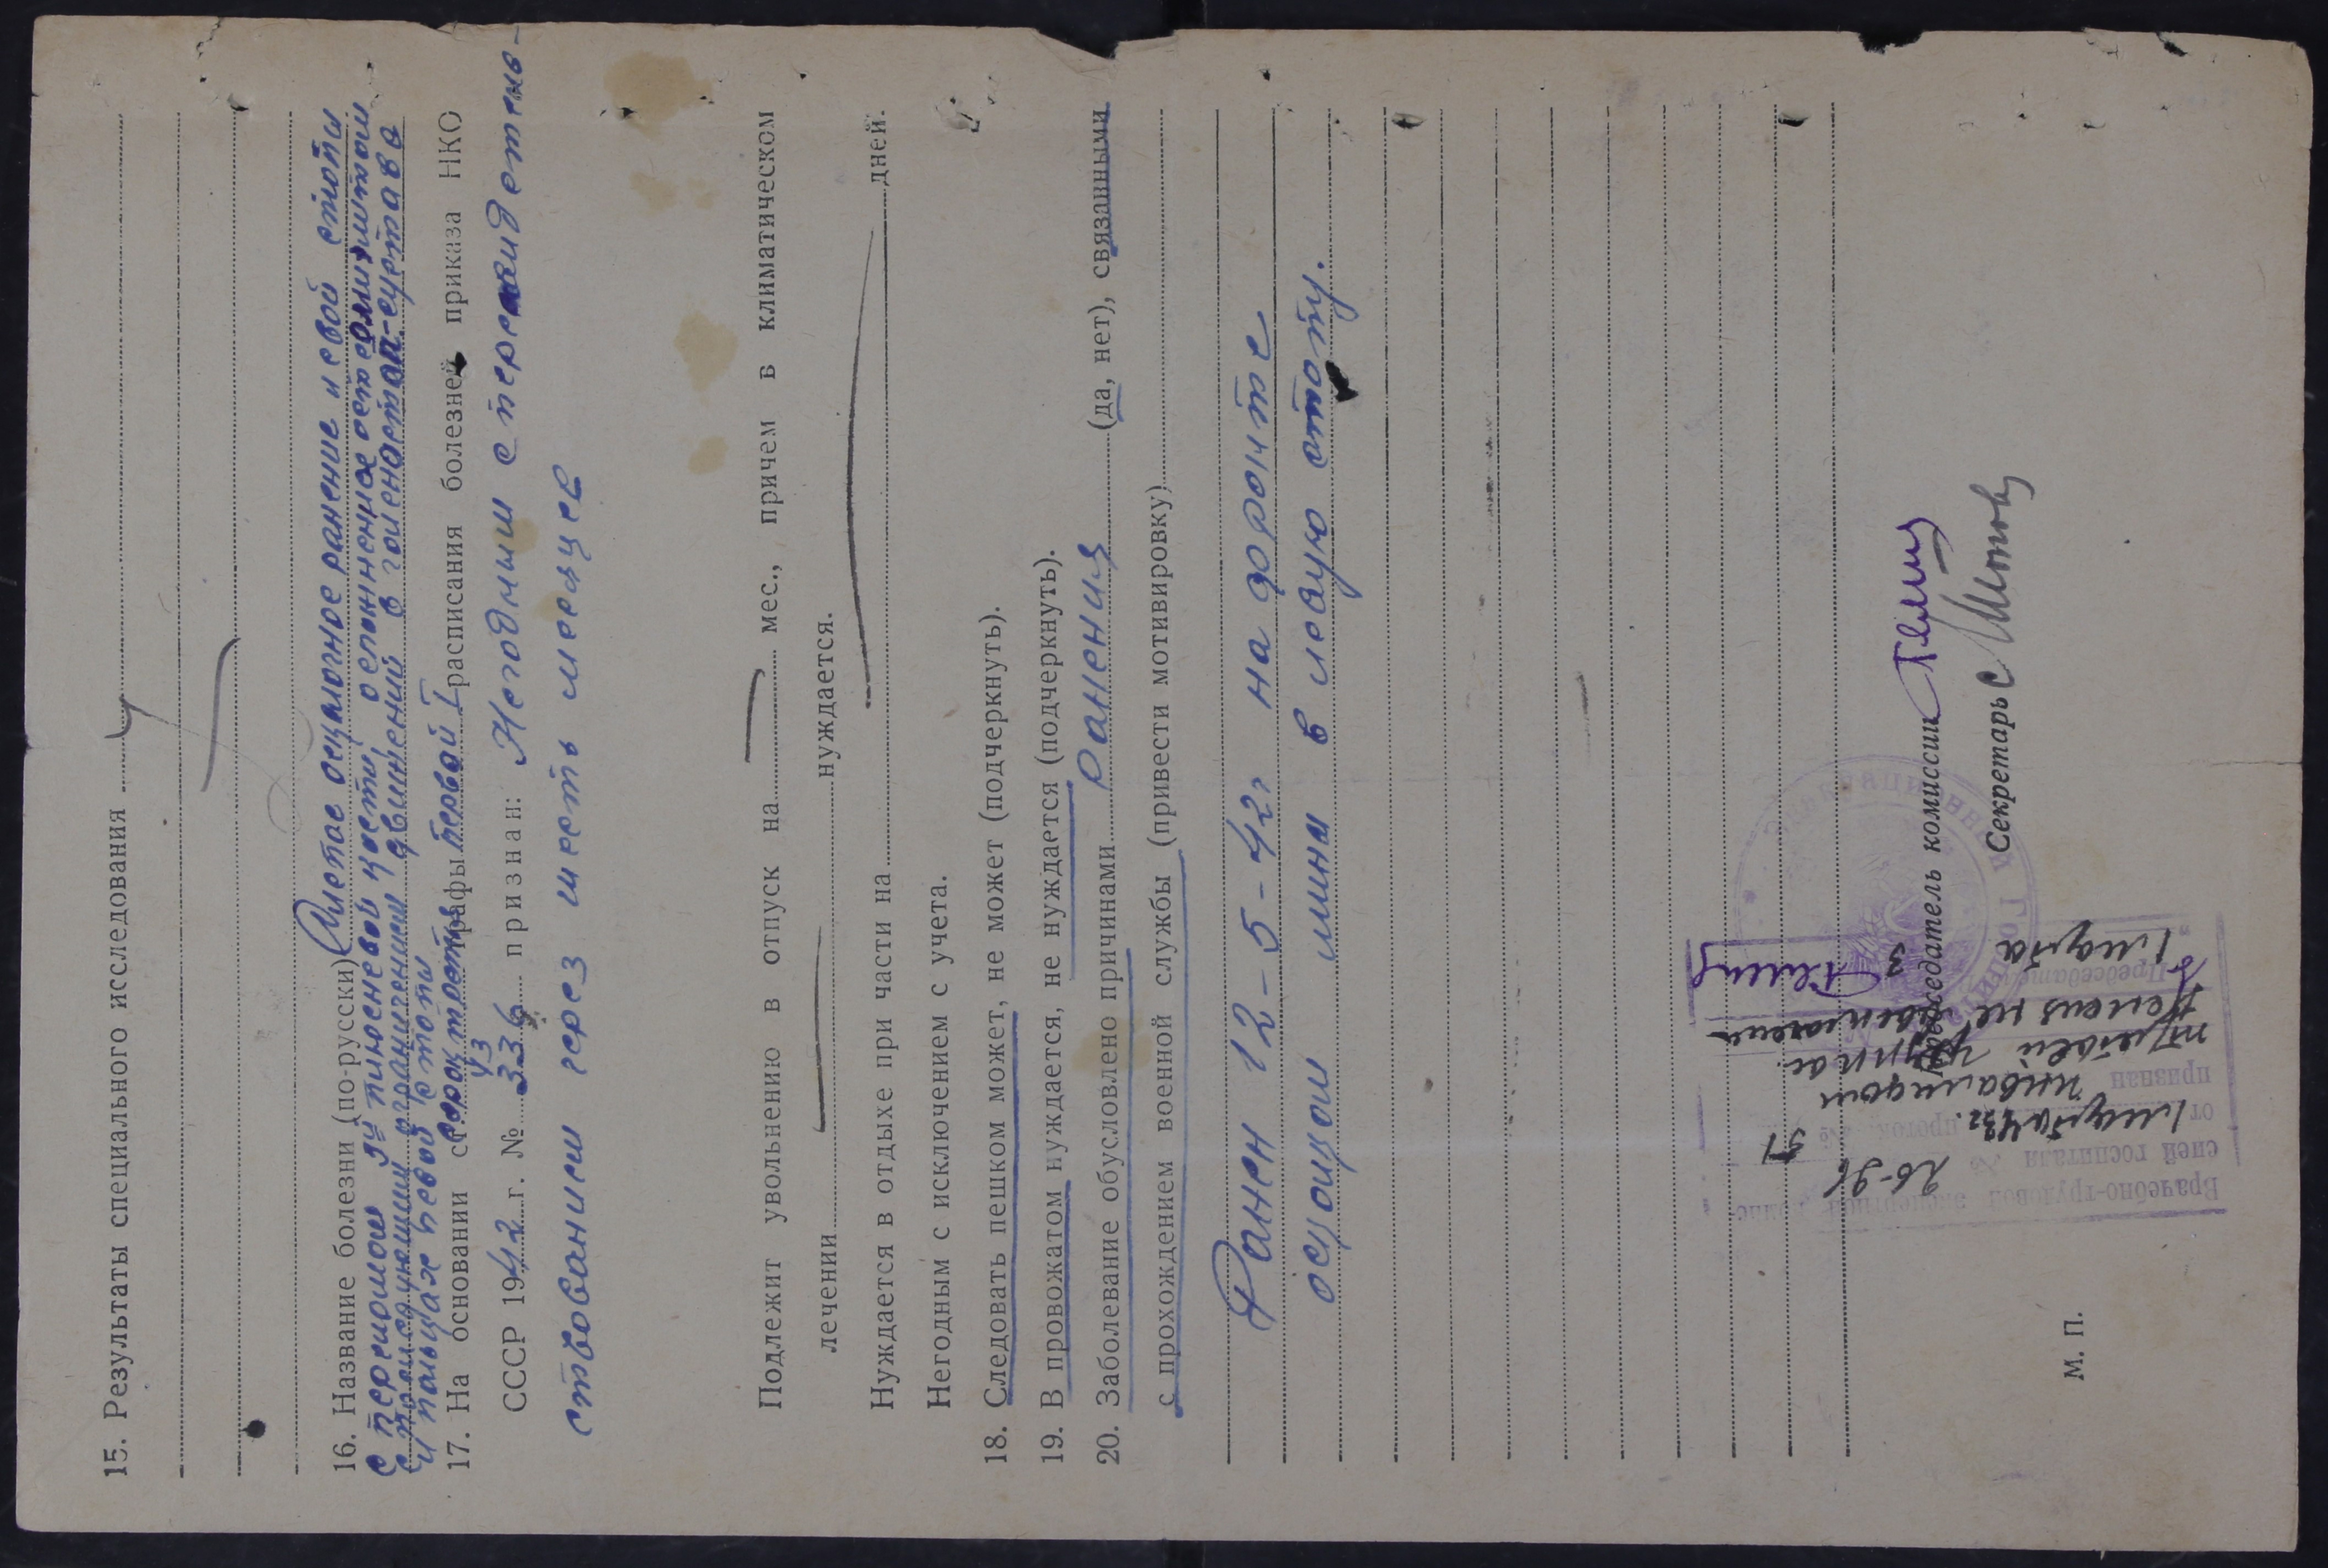 15. Результаты специального исследования
16. Название болезни (по-русски) Слепое осколочное ранение левой стопы
с переломом 5й плюсневой кости, осложненное остеомиэлитом
с последующим ограничением движений в голеностоп-сустава
и пальцах левой стопы
17. На основании ст. сорок третьей графы первой I расписания болезней приказа НКО
43
СССР 1942 г. № 336 признан: Негодным с переосвидетель-
ствованием через шесть месяцев
Подлежит увольнению в отпуск на мес., причем в климатическом
лечении нуждается.
Нуждается в отдыхе при части на дней.
Негодным с исключением с учета.
18. Следовать пешком может, не может (подчеркнуть).
19. В провожатом нуждается, не нуждается (подчеркнуть).
20. Заболевание обусловлено причинами ранения (да, нет), связанными
с прохождением военной службы (привести мотивировку)
Ранен 12-5-42г на фронте
осколком мины в левую стопу.
Председатель комиссии
Секретарь
М. П.
Врачебно-трудовой экспертной комис-
сией госпиталя №
от 1 марта 43г. проток. № 51
признан инвалидом
третьей группы.